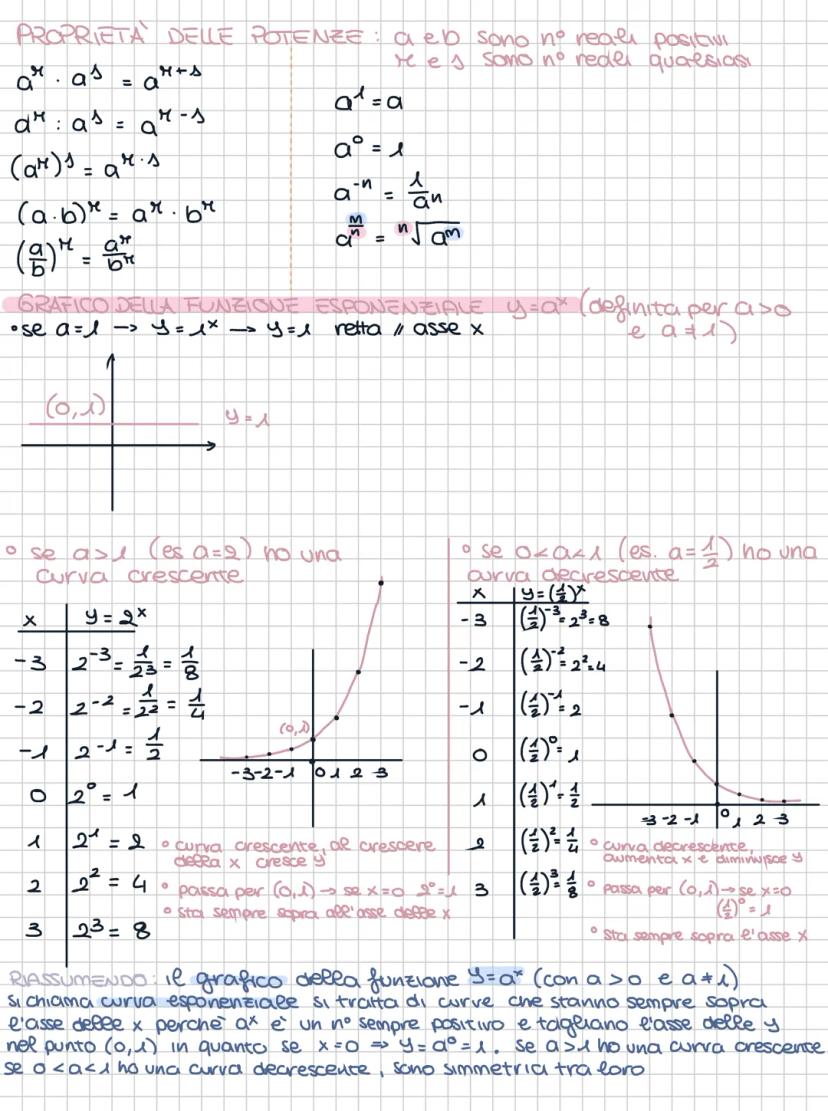 PROPRIETÀ DELLE POTENZE: a e b sono n° reali positivi
r e s sono n° reali qualsiasi
aʳ · aˢ = aʳ⁺ˢ
aʳ : aˢ = aʳ⁻ˢ
(aʳ)ˢ = aʳ·ˢ
(a·b)ʳ = aʳ · bʳ
(a/b)ʳ = aʳ/bʳ
a¹ = a
a⁰ = 1
a⁻ⁿ = 1/aⁿ
a^(m/n) = ⁿ√aᵐ
GRAFICO DELLA FUNZIONE ESPONENZIALE y=aˣ (definita per a>0
e a≠1)
• se a=1 → y=1ˣ → y=1 retta // asse x
(0,1)
y=1
° se a>1 (es a=2) ho una
curva crescente
x y=2ˣ
-3 2⁻³ = 1/2³ = 1/8
-2 2⁻² = 1/2² = 1/4
-1 2⁻¹ = 1/2
0 2⁰ = 1
1 2¹ = 2
2 2² = 4
3 2³ = 8
(0,1)
-3 -2 -1 0 1 2 3
° curva crescente, al crescere
della x cresce y
° passa per (0,1) → se x=0 2⁰=1
° sta sempre sopra all'asse delle x
° se 0<a<1 (es. a=1/2) ho una
curva decrescente
x y=(1/2)ˣ
-3 (1/2)⁻³=2³=8
-2 (1/2)⁻²=2²=4
-1 (1/2)⁻¹=2
0 (1/2)⁰=1
1 (1/2)¹=1/2
2 (1/2)²=1/4
3 (1/2)³=1/8
-3 -2 -1 0 1 2 3
° curva decrescente,
aumenta x e diminuisce y
° passa per (0,1) → se x=0
(1/2)⁰=1
° sta sempre sopra l'asse x
RIASSUMENDO: il grafico della funzione y=aˣ (con a>0 e a≠1)
si chiama curva esponenziale si tratta di curve che stanno sempre sopra
l'asse delle x perchè aˣ è un n° sempre positivo e tagliano l'asse delle y
nel punto (0,1) in quanto se x=0 ⇒ y=a⁰=1. se a>1 ho una curva crescente
se 0<a<1 ho una curva decrescente, sono simmetria tra loro